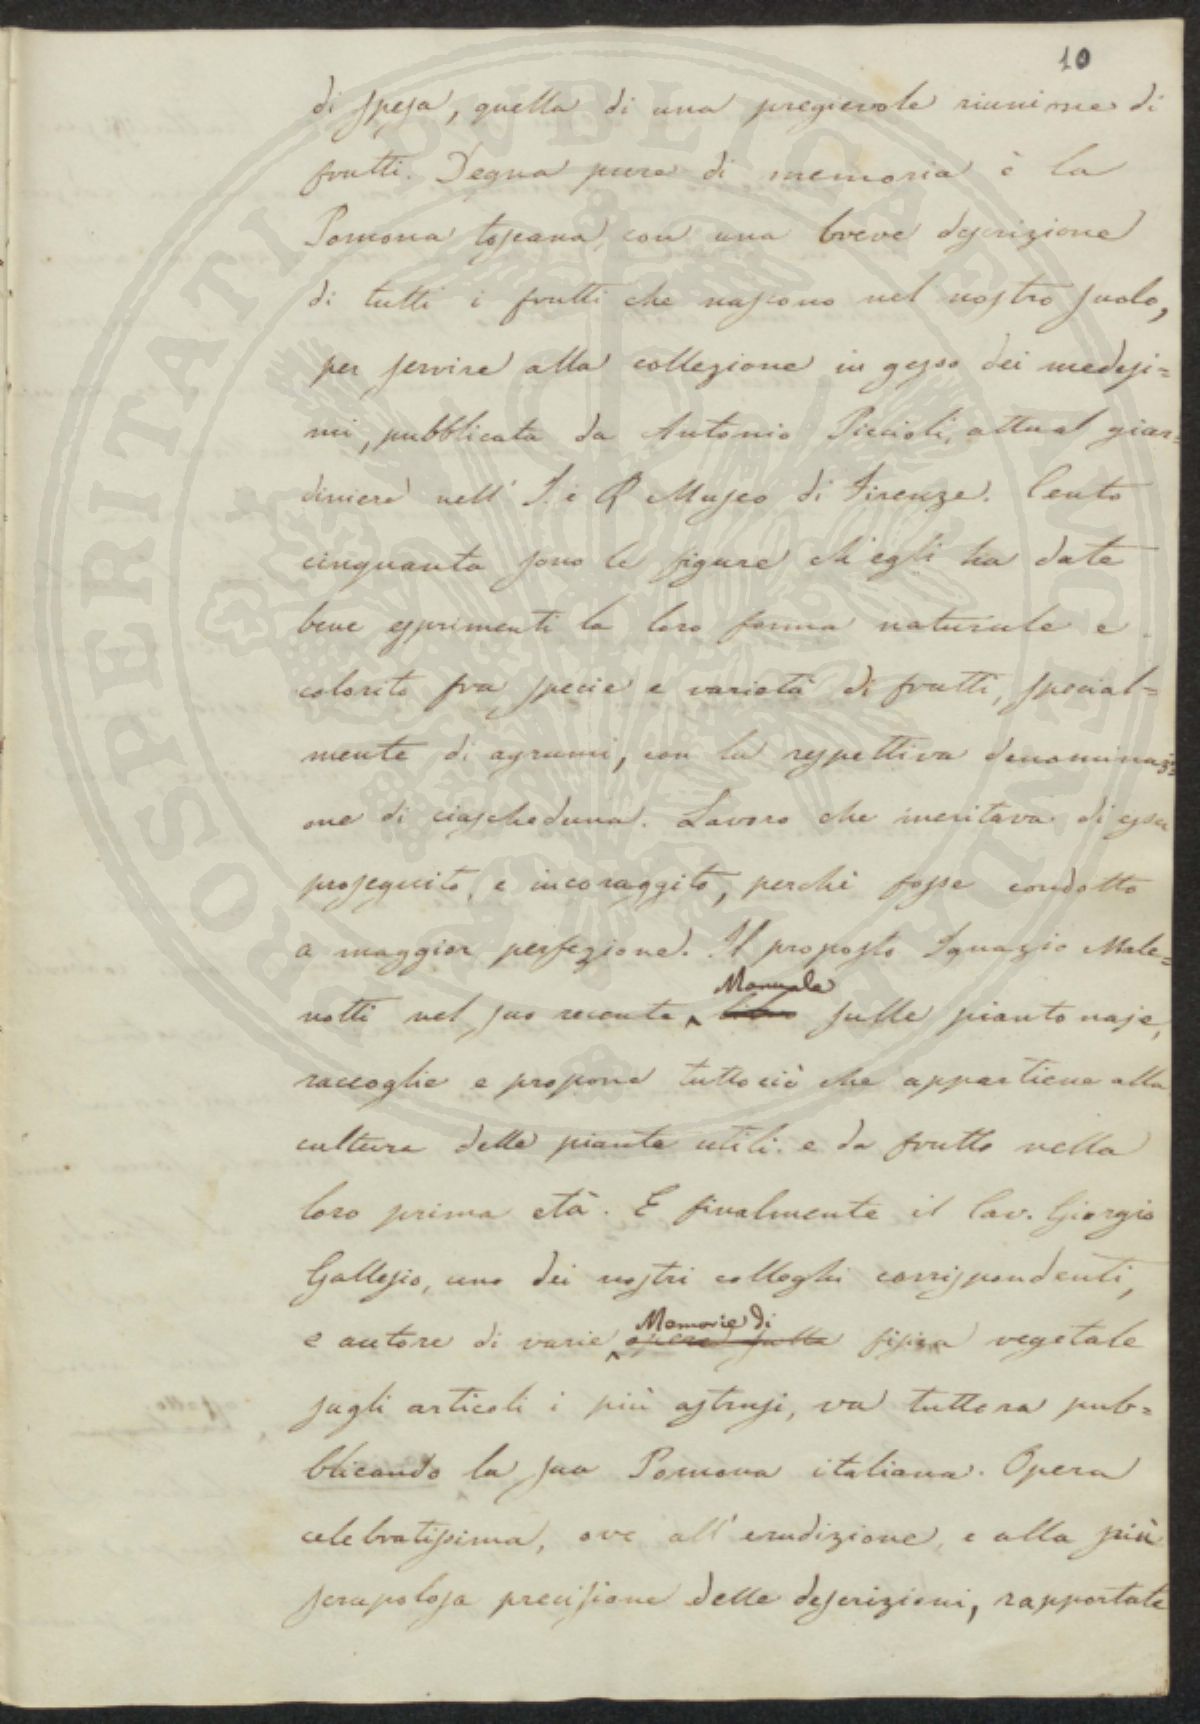 10
di spesa, quella di una pregievole riunione di
frutti. Degna pure di memoria è la
Pomona toscana, con una breve descrizione
di tutti i frutti che nascono nel nostro suolo,
per servire alla collezione in gesso dei medesi=
mi, pubblicata da Antonio Piccioli, attual giar=
diniere nell' I. e R Museo di Firenze. Cento
cinquanta sono le figure ch'egli ha date
bene esprimenti la loro forma naturale e
colorito fra specie e varietà di frutti, special=
mente di agrumi, con la respettiva denominazi=
one di ciascheduna. Lavoro che meritava di esser
proseguito, e incoraggito, perchè fosse condotto
a maggior perfezione. Il proposto Ignazio Male=
Manuale
notti nel suo recente libro sulle piantonaje,
raccoglie e propone tuttociò che appartiene alla
cultura delle piante utili e da frutto nella
loro prima età. E finalmente il Cav. Giorgio
Gallesio, uno dei nostri colleghi corrispondenti,
Memorie di
e autore di varie opere sulla fisica vegetale
sugli articoli i più astrusi, va tuttora pub=
blicando la sua Pomona italiana. Opera
celebratissima, ove all'erudizione, e alla più
scrupolosa precisione delle descrizioni, rapportate
PROSPERITATI PVBLICAE AVGENDAE